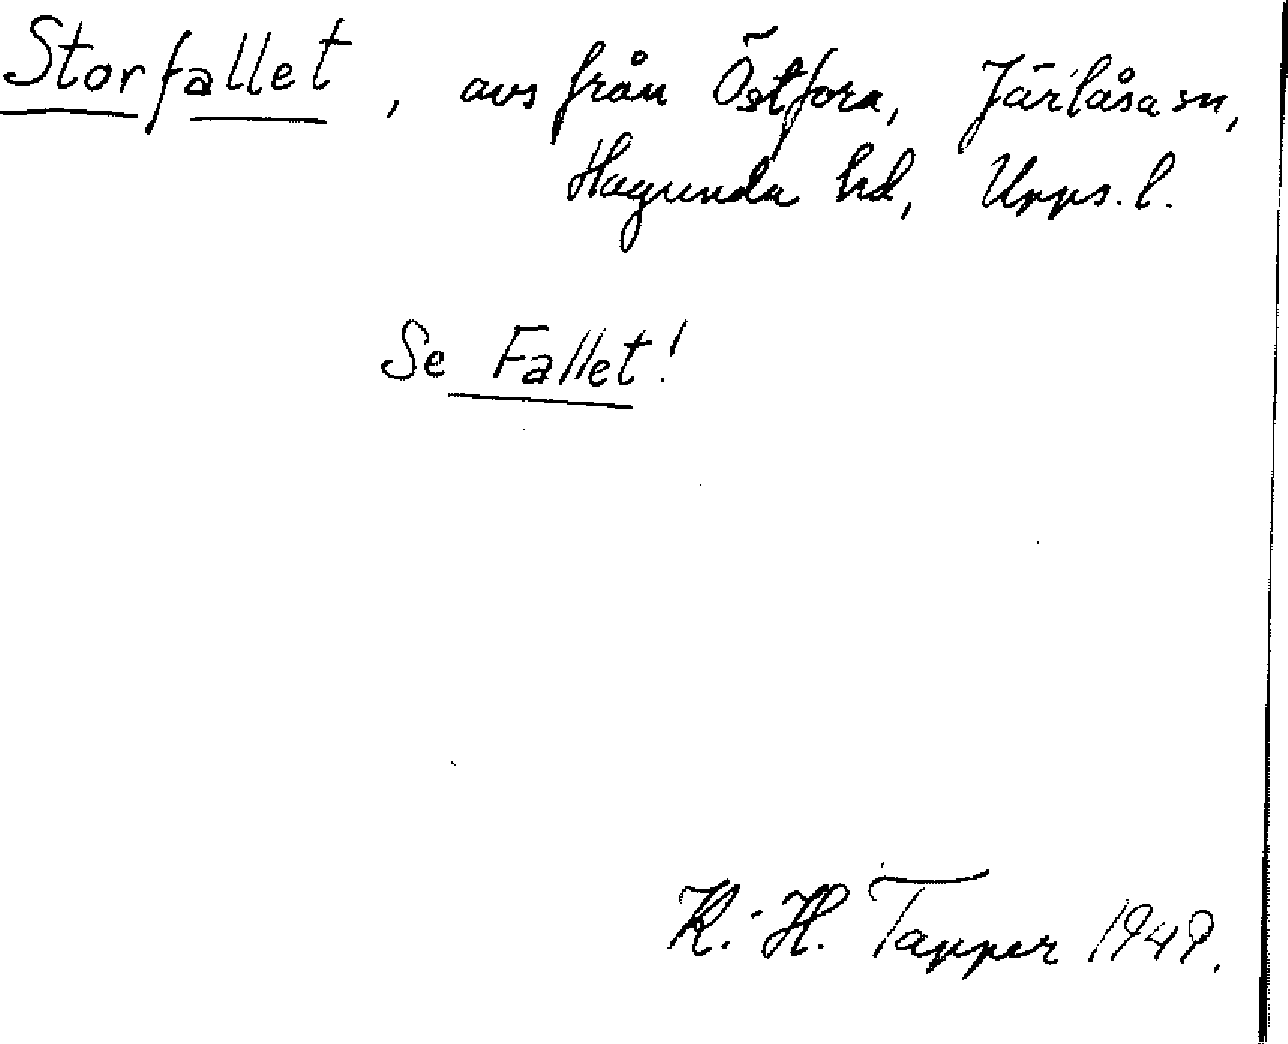 Storfallet, avs från Östfora, Järlåsa sn,
Hagunda hd, Upps. l.
Se Fallet!
K.-H. Tapper 1949.